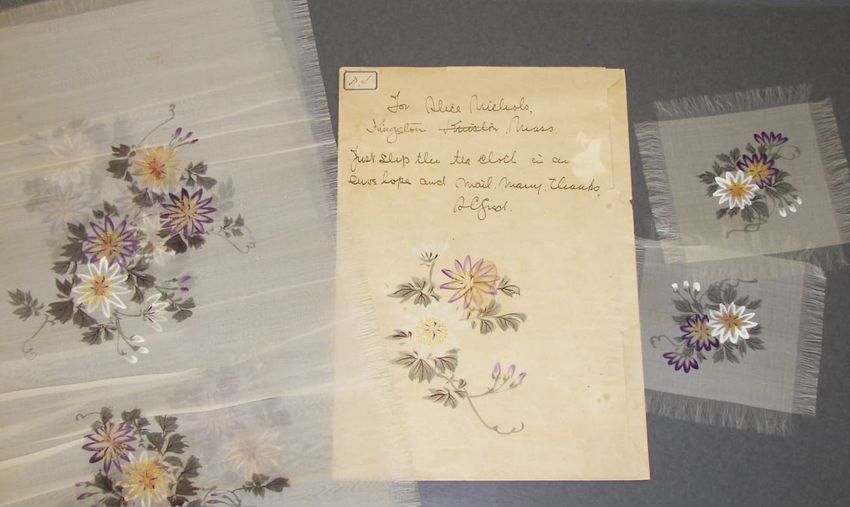 For Alice Nichols,
Kingston Mass.
Just slip the tea cloth in an
envelope and mail. Many thanks,